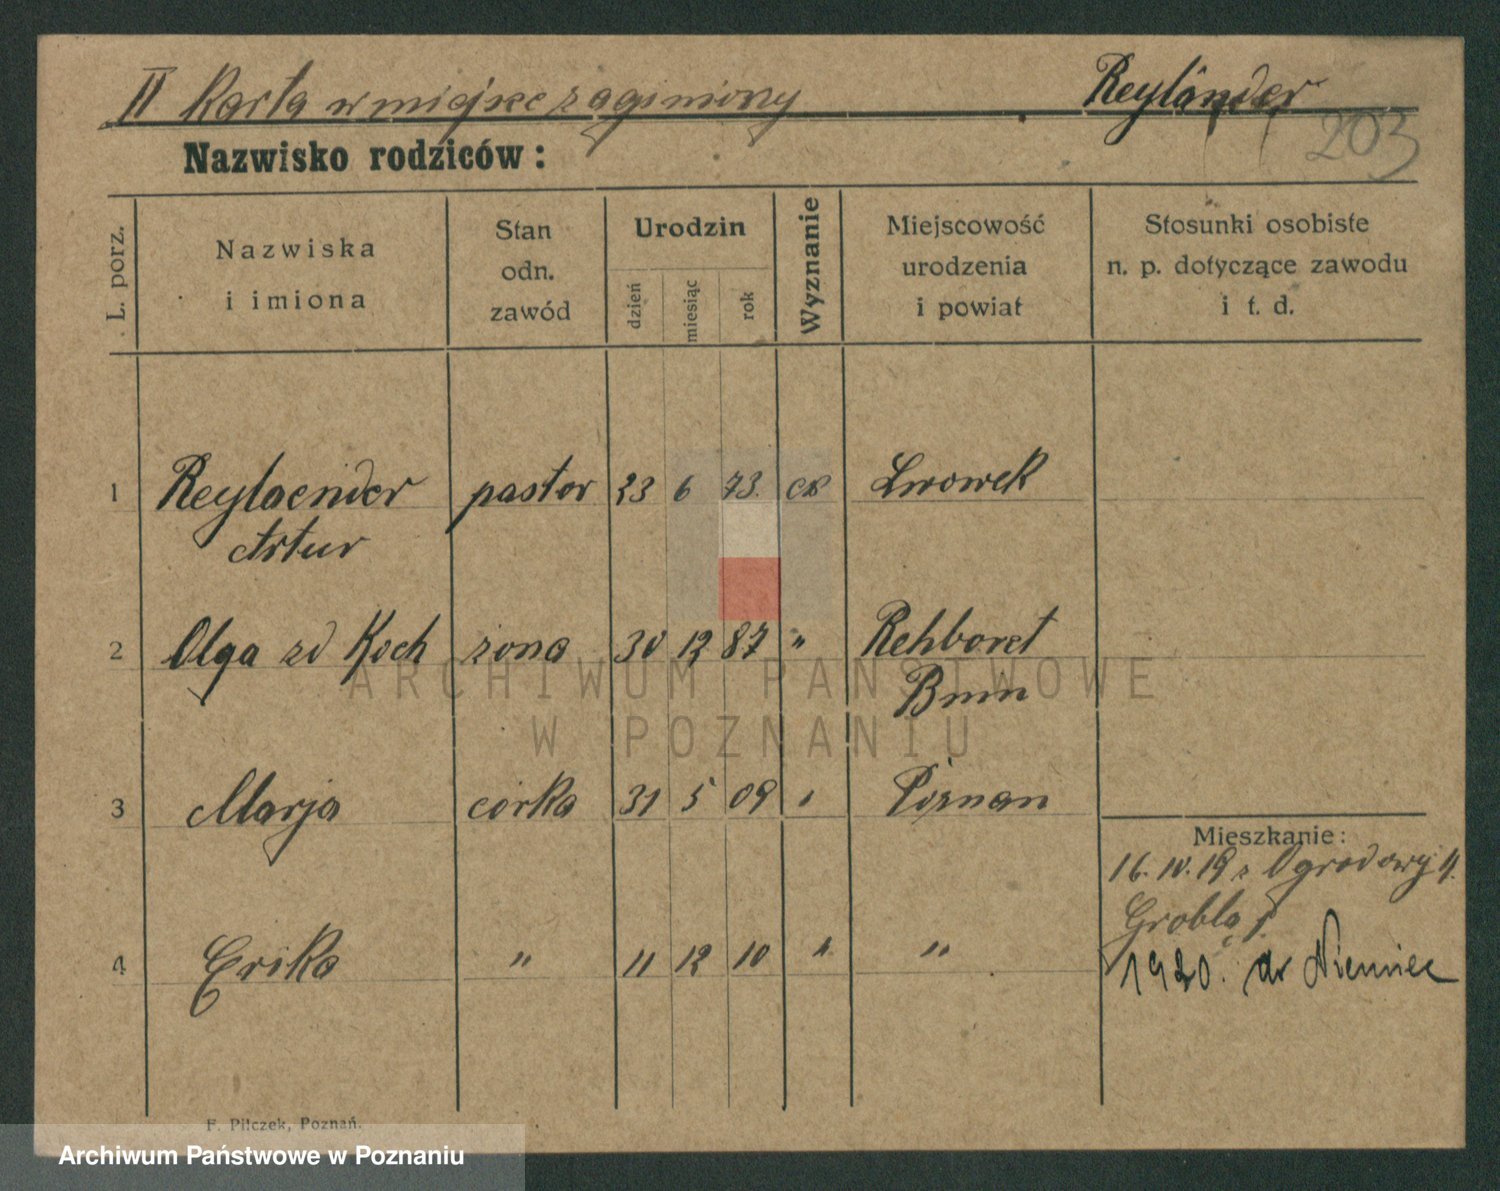 II Karta w miejsce zaginiony Reyländer
203
Nazwisko rodziców:
L. porz.
Nazwiska
i imiona
Stan
odn.
zawód
Urodzin
dzień
miesiąc
rok
Wyznanie
Miejscowość
urodzenia
i powiat
Stosunki osobiste
n. p. dotyczące zawodu
i t. d.
1 Reylaender pastor 23 6 73. ew Lwowek
Artur
2 Olga zd Koch żona 30 12 87 " Rehboret
Bnin
3 Marja córka 31 5 09 " Poznan
Mieszkanie:
16. IV. 19 z Ogrodowy 4.
Grobla 1.
4 Erika " 11 12 10 " "
1920. do Niemiec
F. Pilczek, Poznań.
ARCHIWUM PAŃSTWOWE
W POZNANIU
Archiwum Państwowe w Poznaniu